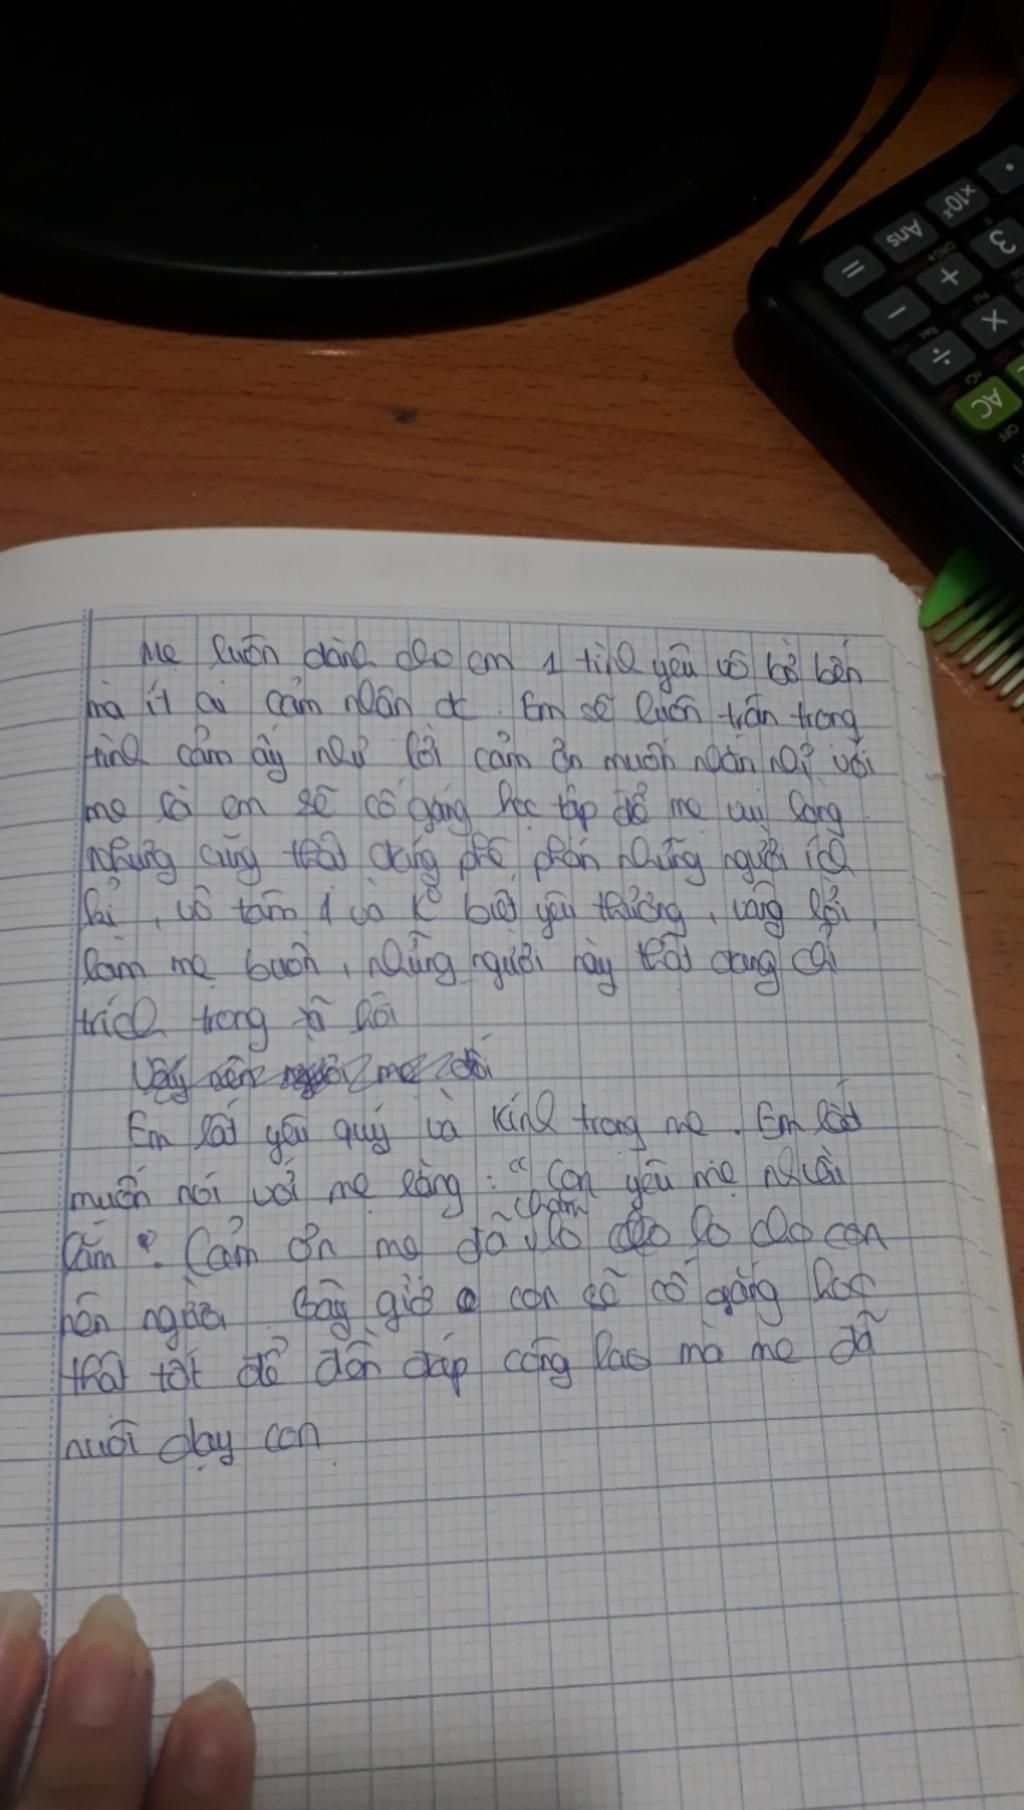 =
Ans
×10ˣ
.
−
+
3
÷
×
AC
OFF
Mẹ luôn dành cho em 1 tình yêu vô bờ bến
mà ít ai cảm nhận đc. Em sẽ luôn trân trọng
tình cảm ấy như lời cảm ơn muốn nhắn nhủ với
mẹ là em sẽ cố gắng học tập để mẹ vui lòng.
nhưng cũng thật đáng phê phán những người ích
kỉ, vô tâm và k biết yêu thương, vâng lời,
làm mẹ buồn, những người này thật đang chỉ
trích trong xã hội
Vậy nên người mẹ đối
Em rất yêu quý và kính trọng mẹ. Em rất
muốn nói với mẹ rằng: "Con yêu mẹ nhiều
lắm". Cảm ơn mẹ đã chăm lo cho lo cho con
nên người. Bây giờ con sẽ cố gắng học
thật tốt để đền đáp công lao mà mẹ đã
nuôi dạy con.